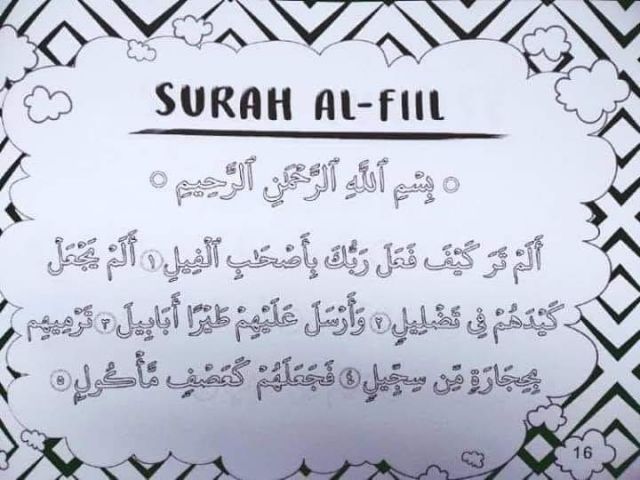 SURAH AL-FIIL
بِسْمِ ٱللَّهِ ٱلرَّحْمَٰنِ ٱلرَّحِيمِ
أَلَمْ تَرَ كَيْفَ فَعَلَ رَبُّكَ بِأَصْحَٰبِ ٱلْفِيلِ ١ أَلَمْ يَجْعَلْ
كَيْدَهُمْ فِى تَضْلِيلٍ ٢ وَأَرْسَلَ عَلَيْهِمْ طَيْرًا أَبَابِيلَ ٣ تَرْمِيهِم
بِحِجَارَةٍ مِّن سِجِّيلٍ ٤ فَجَعَلَهُمْ كَعَصْفٍ مَّأْكُولٍ ٥
16